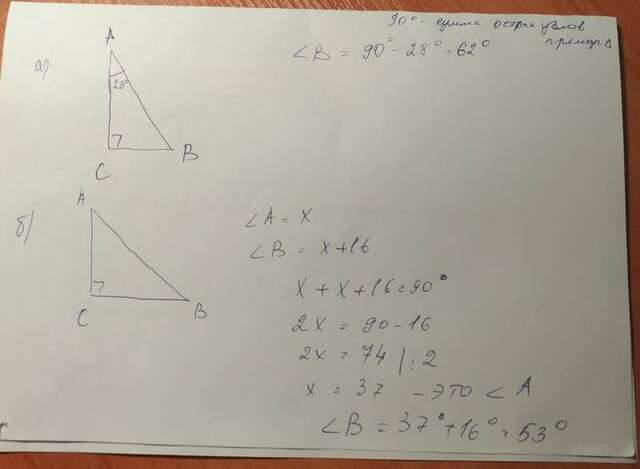 90° - сумма острых углов
прямоу Δ
а)
∠B = 90° - 28° = 62°
A
28°
C
B
б)
A
C
B
∠A = x
∠B = x+16
x + x + 16 = 90°
2x = 90 - 16
2x = 74 | : 2
x = 37 - это ∠ A
∠B = 37° + 16° = 53°